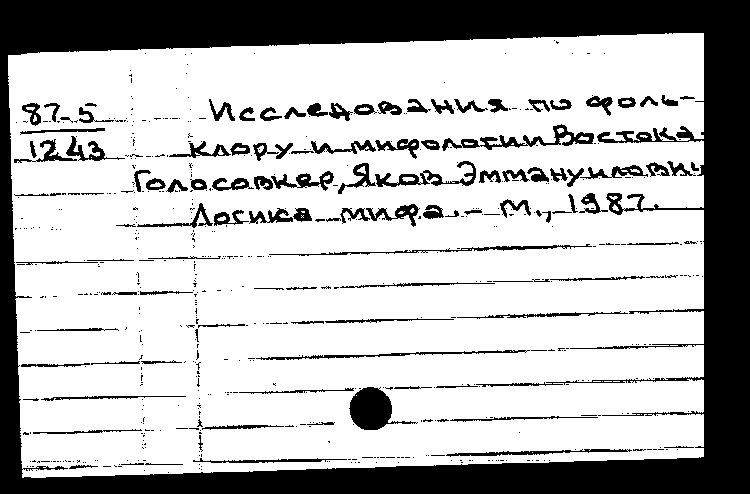 87-5
1243
Исследования по фоль-
клору и мифологии Востока.
Голосовкер, Яков Эммануилович
Логика мифа. - М., 1987.